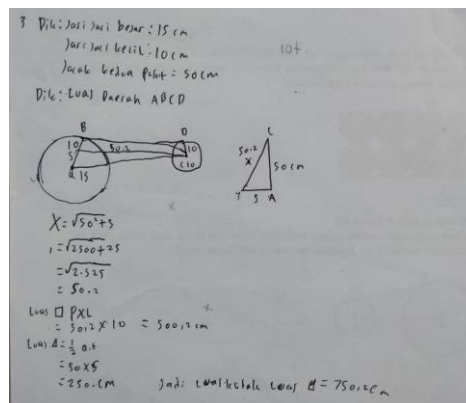 3 Dik: Jari Jari besar : 15 cm
Jari Jari kecil : 10 cm
Jarak kedua pusat = 50 cm
Dik: Luas Daerah ABCD
B
D
10
5
50.2
10
a
15
C 10
C
50.2
X
50 cm
5
A
X = √50²+5
= √2500+25
= √2.525
= 50.2
Luas □ PXL
= 50,2 x 10 = 500,2 cm
Luas Δ = 1/2 a.t
= 50 x 5
= 250.cm
Jadi luas = 750,2 cm